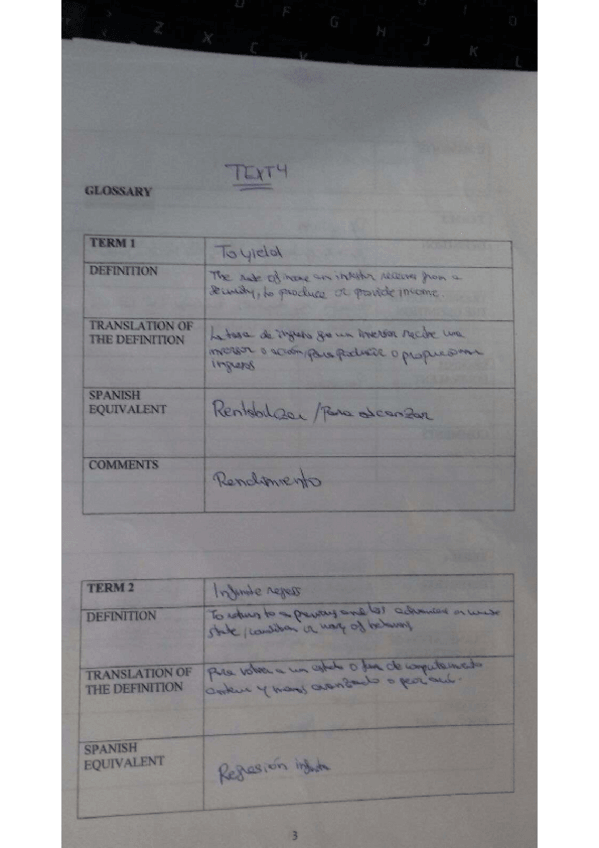 TEXT 4
GLOSSARY
TERM 1
To yield
DEFINITION
The rate of income an investor receives from a
security, to produce or provide income.
TRANSLATION OF
THE DEFINITION
La tasa de ingreso que un inversor recibe una
inversor o acción, para producir o proporcionar
ingresos
SPANISH
EQUIVALENT
Rentabilizar / Para alcanzar
COMMENTS
Rendimiento
TERM 2
Infinite regress
DEFINITION
To return to a previous and less advanced or worse
state, condition or way of behaving
TRANSLATION OF
THE DEFINITION
Para volver a un estado o de comportamiento
y menos avanzado o peor
SPANISH
EQUIVALENT
Regresión infinita
3